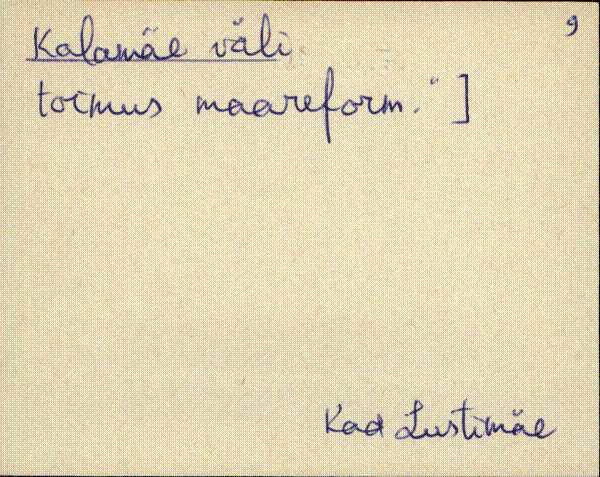 9
Kalamäe väli
toimus maareform." ]
Kad Lustimäe